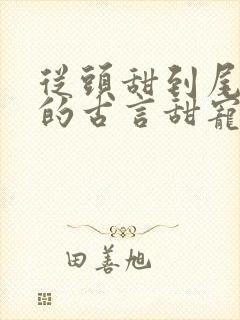 從頭甜到尾
的古言甜寵
田善旭